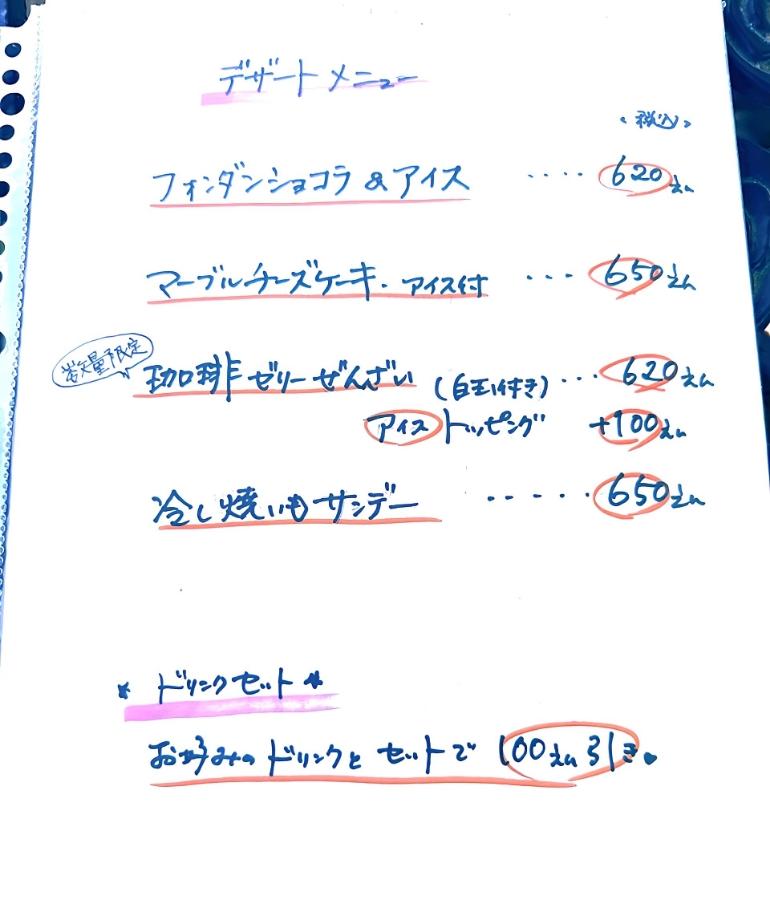 デザートメニュー
<税込>
フォンダンショコラ&アイス ・・・・ 620えん
マーブルチーズケーキ・アイス付 ・・・ 650えん
数量限定
珈琲ゼリーぜんざい (白玉付き) ・・・ 620えん
アイストッピング +100えん
冷し焼いもサンデー ・・・・・ 650えん
* ドリンクセット *
お好みのドリンクとセットで 100えん引き。